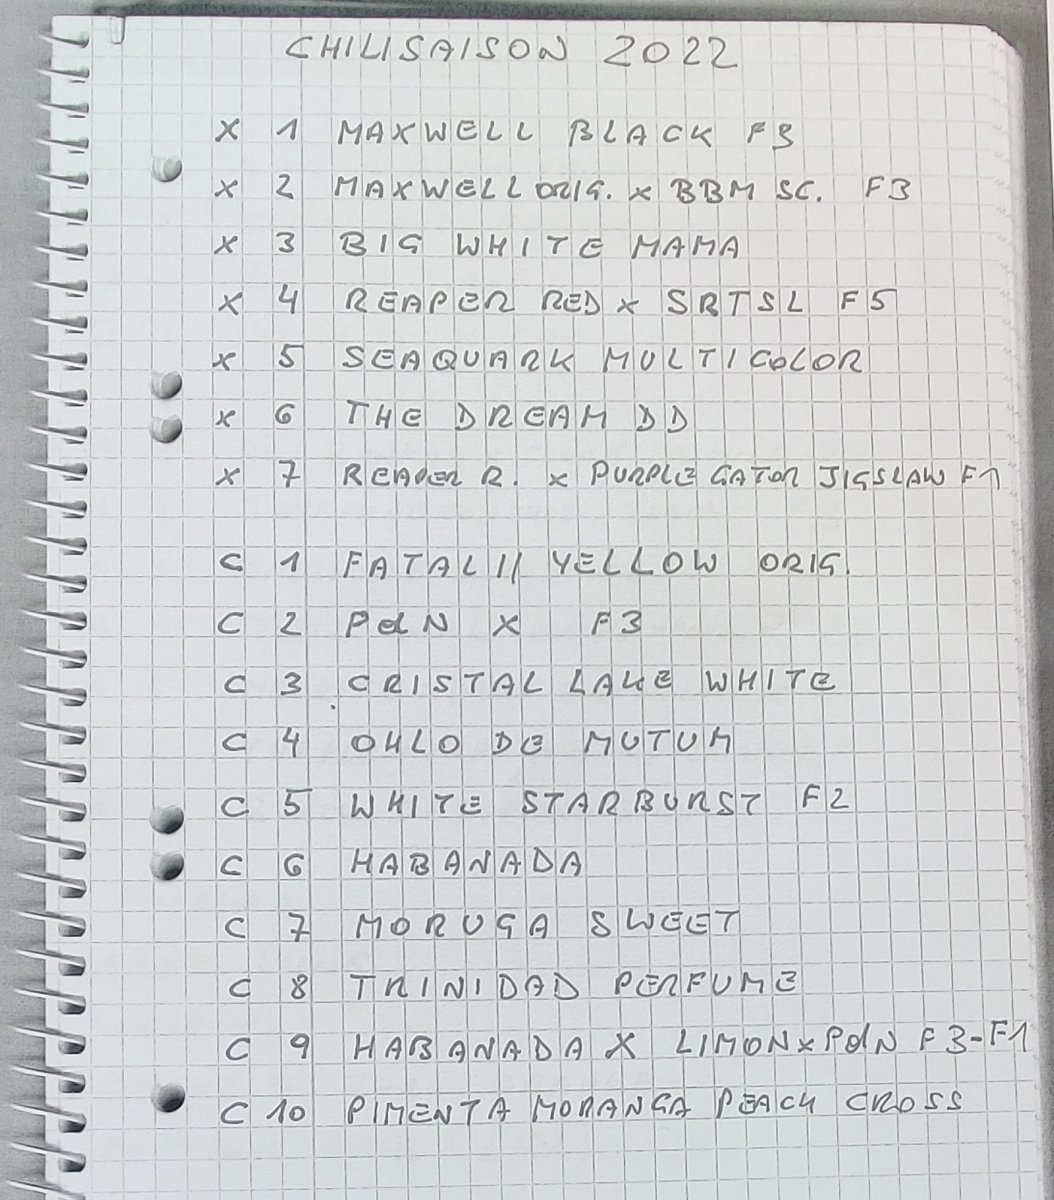 CHILISAISON 2022
X 1 MAXWELL BLACK F3
X 2 MAXWELL ORIG. X BBM SC. F3
X 3 BIG WHITE MAMA
X 4 REAPER RED X SRTSL F5
X 5 SEAQUARK MULTICOLOR
X 6 THE DREAM DD
X 7 REAPER R. X PURPLE GATOR JIGSLAW F1
C 1 FATALII YELLOW ORIG.
C 2 PdN X F3
C 3 CRISTAL LAKE WHITE
C 4 OHLO DE MUTUM
C 5 WHITE STARBURST F2
C 6 HABANADA
C 7 MORUGA SWEET
C 8 TRINIDAD PERFUME
C 9 HABANADA X LIMON X PdN F3-F1
C 10 PIMENTA MORANGA PEACH CROSS